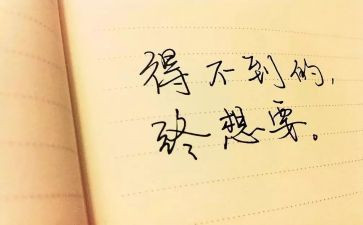 得不到的，
终想要。